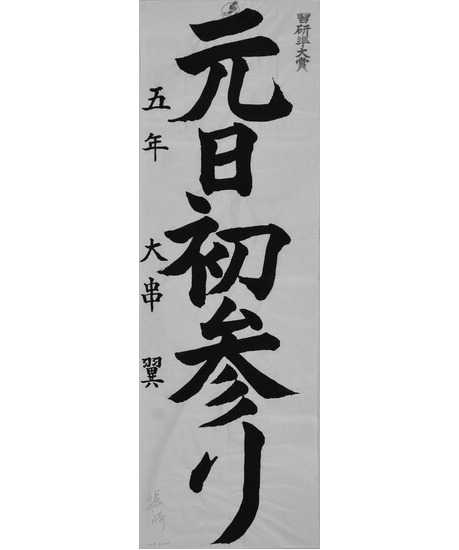 習研準大賞
元日初参り
五年 大串 翼